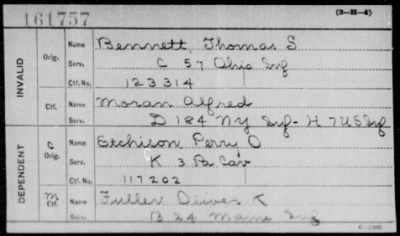 161757
(3-H-4)
INVALID
Orig. Name Bennett, Thomas S
Serv. C 57 Ohio Inf
Ctf. No. 123314
Ctf. Name Moran Alfred
Serv. D 184 NY Inf - H 7 US Inf
DEPENDENT
C Orig. Name Etchison Perry O
Serv. K 3 Pa Cav
Ctf. No. 117202
M Ctf. Name Fuller K
Serv. B 24 Mass Inf